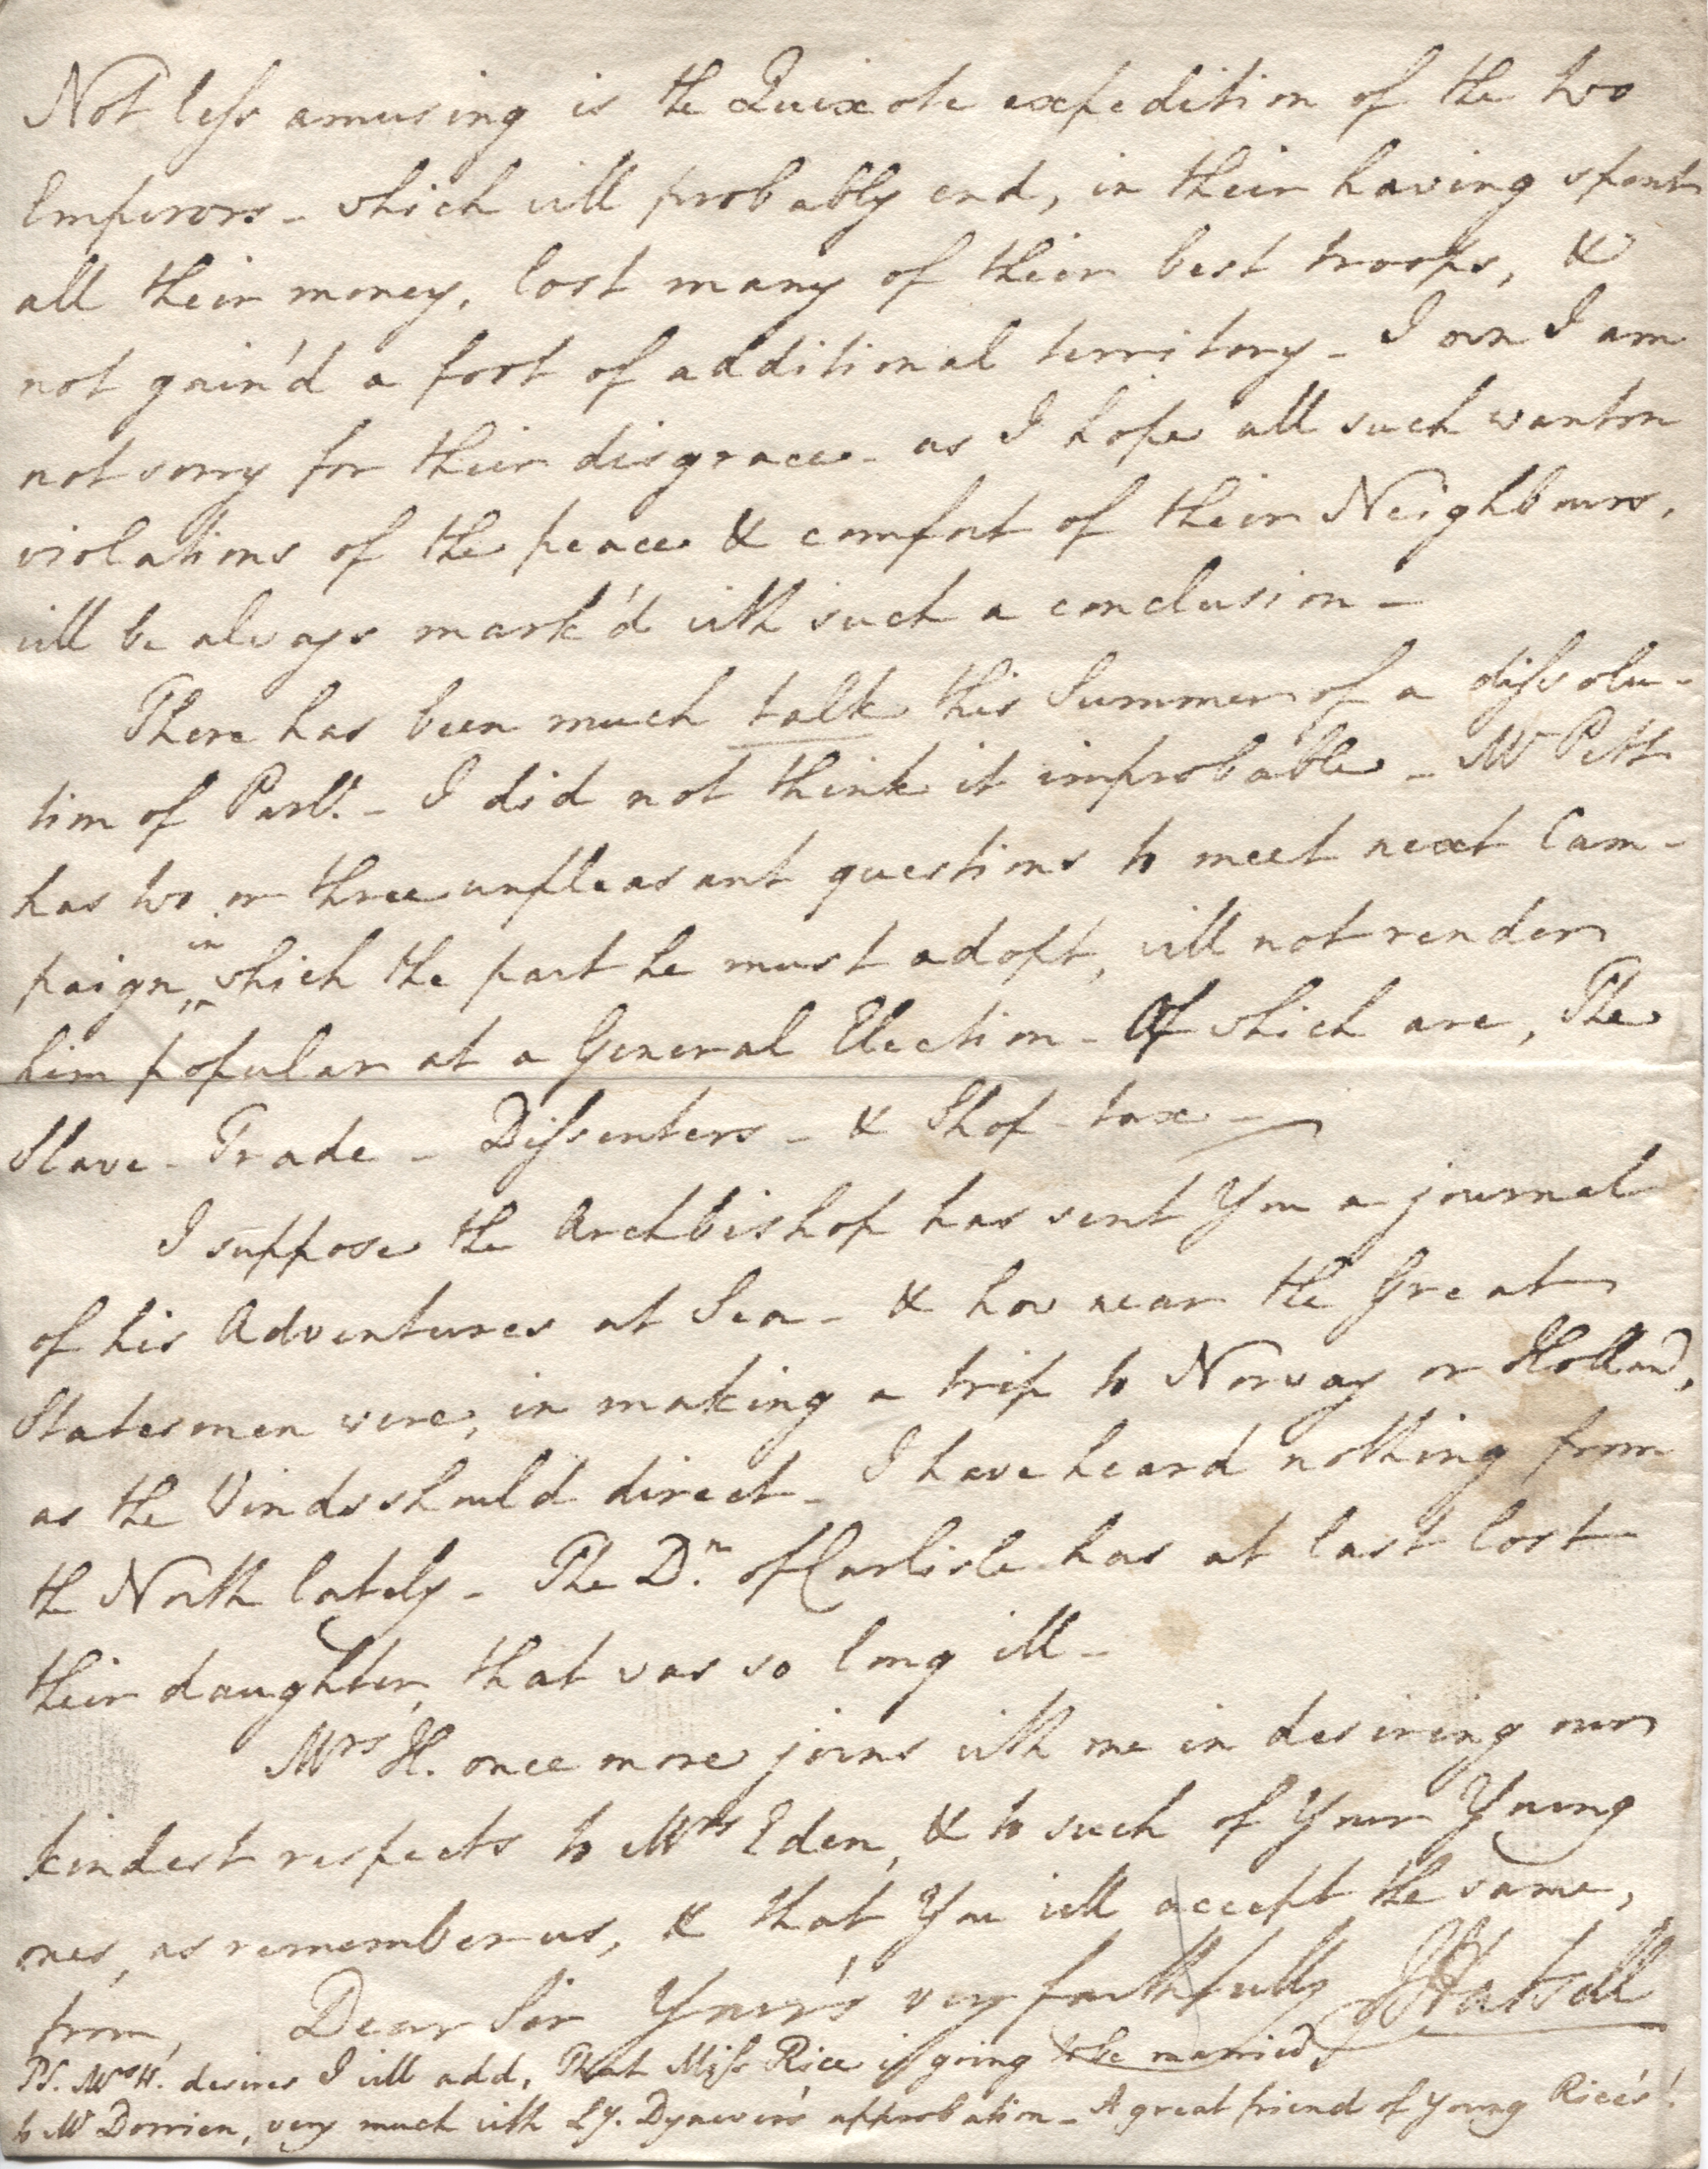 Not less amusing is the Quixote expedition of the two
Emperors - which will probably end, in their having spent
all their money, lost many of their best troops, &
not gain'd a foot of additional territory - I own I am
not sorry for their disgrace - as I hope all such wanton
violations of the peace & comfort of their Neighbours,
will be always mark'd with such a conclusion -
There has been much talk this Summer of a dissolu-
tion of Parlt. - I did not think it improbable - Mr Pitt
has two or three unpleasant questions to meet next Cam-
paign in which the part he must adopt, will not render
him popular at a General Election - Of which are, The
Slave - Trade - Dissenters - & Shop - tax -
I suppose the Archbishop has sent You a journal
of his Adventures at Sea - & how near the Great
Statesmen were, in making a trip to Norway or Holland,
as the Winds should direct - I have heard nothing from
the North lately - The Dn. of Carlisle has at last lost
their daughter, that was so long ill -
Mrs H. once more joins with me in desiring our
kindest respects to Mrs Eden, & to such of Your Young
ones, as remember us, & that You will accept the same,
from, Dear Sir Your's very faithfully JHatsell
PS. Mrs H. desires I will add, That Miss Rice is going to be married,
to Mr Dorrien, very much with Ly. Dynevor's approbation - A great friend of young Rice's!